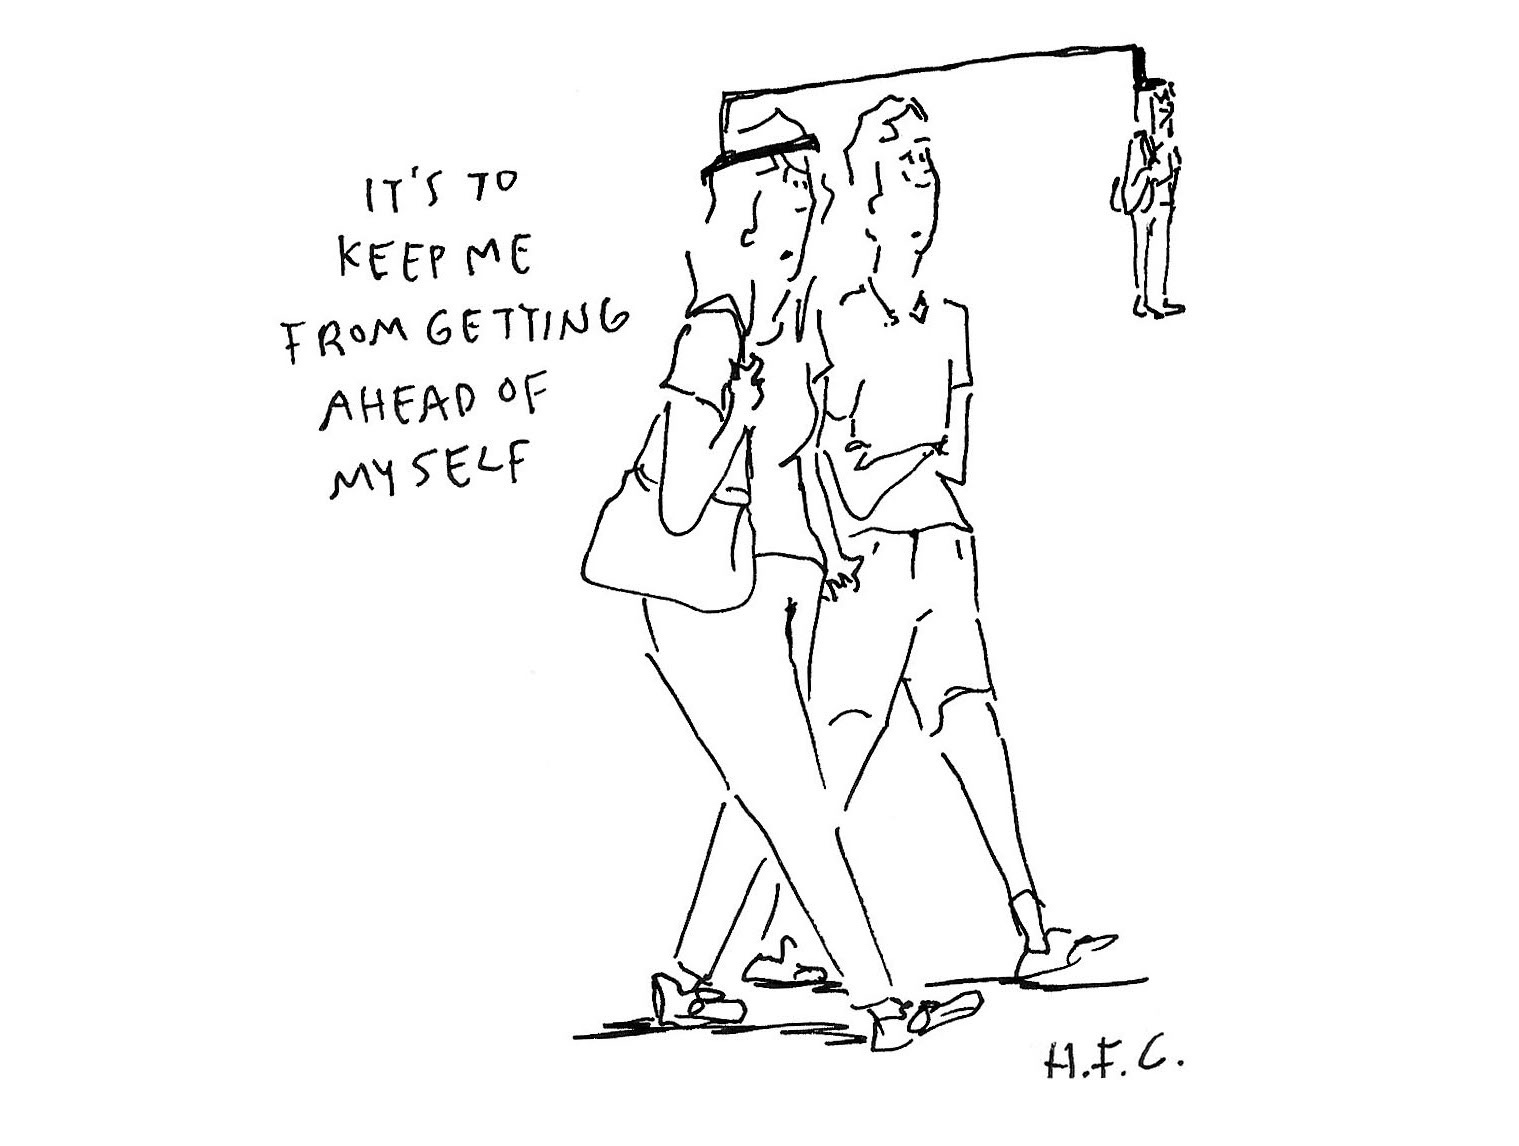 IT'S TO
KEEP ME
FROM GETTING
AHEAD OF
MYSELF
H.F.C.